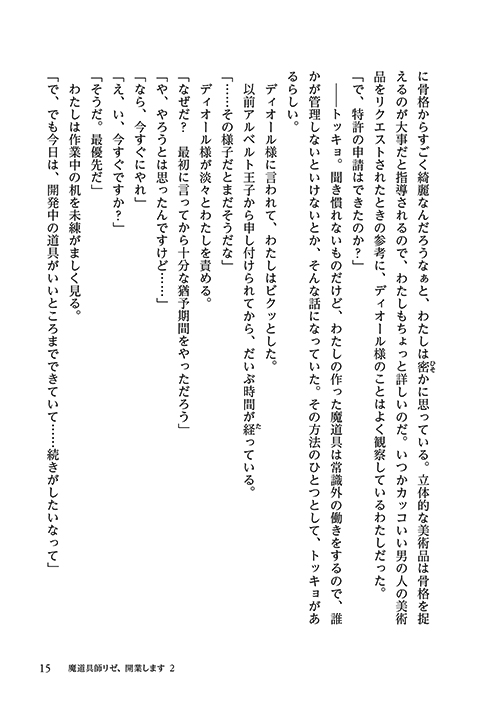 に骨格からすごく綺麗なんだろうなぁと、わたしは密かに思っている。立体的な美術品は骨格を捉
えるのが大事だと指導されるので、わたしもちょっと詳しいのだ。いつかカッコいい男の人の美術
品をリクエストされたときの参考に、ディオール様のことはよく観察しているわたしだった。
「で、特許の申請はできたのか？」
――トッキョ。聞き慣れないものだけど、わたしの作った魔道具は常識外の働きをするので、誰
かが管理しないといけないとか、そんな話になっていた。その方法のひとつとして、トッキョがあ
るらしい。
ディオール様に言われて、わたしはビクッとした。
以前アルベルト王子から申し付けられてから、だいぶ時間が経っている。
「……その様子だとまだそうだな」
ディオール様が淡々とわたしを責める。
「なぜだ？　最初に言ってから十分な猶予期間をやっただろう」
「や、やろうとは思ったんですけど……」
「なら、今すぐにやれ」
「え、い、今すぐですか？」
「そうだ。最優先だ」
わたしは作業中の机を未練がましく見る。
「で、でも今日は、開発中の道具がいいところまでできていて……続きがしたいなって」
15　魔道具師リゼ、開業します 2